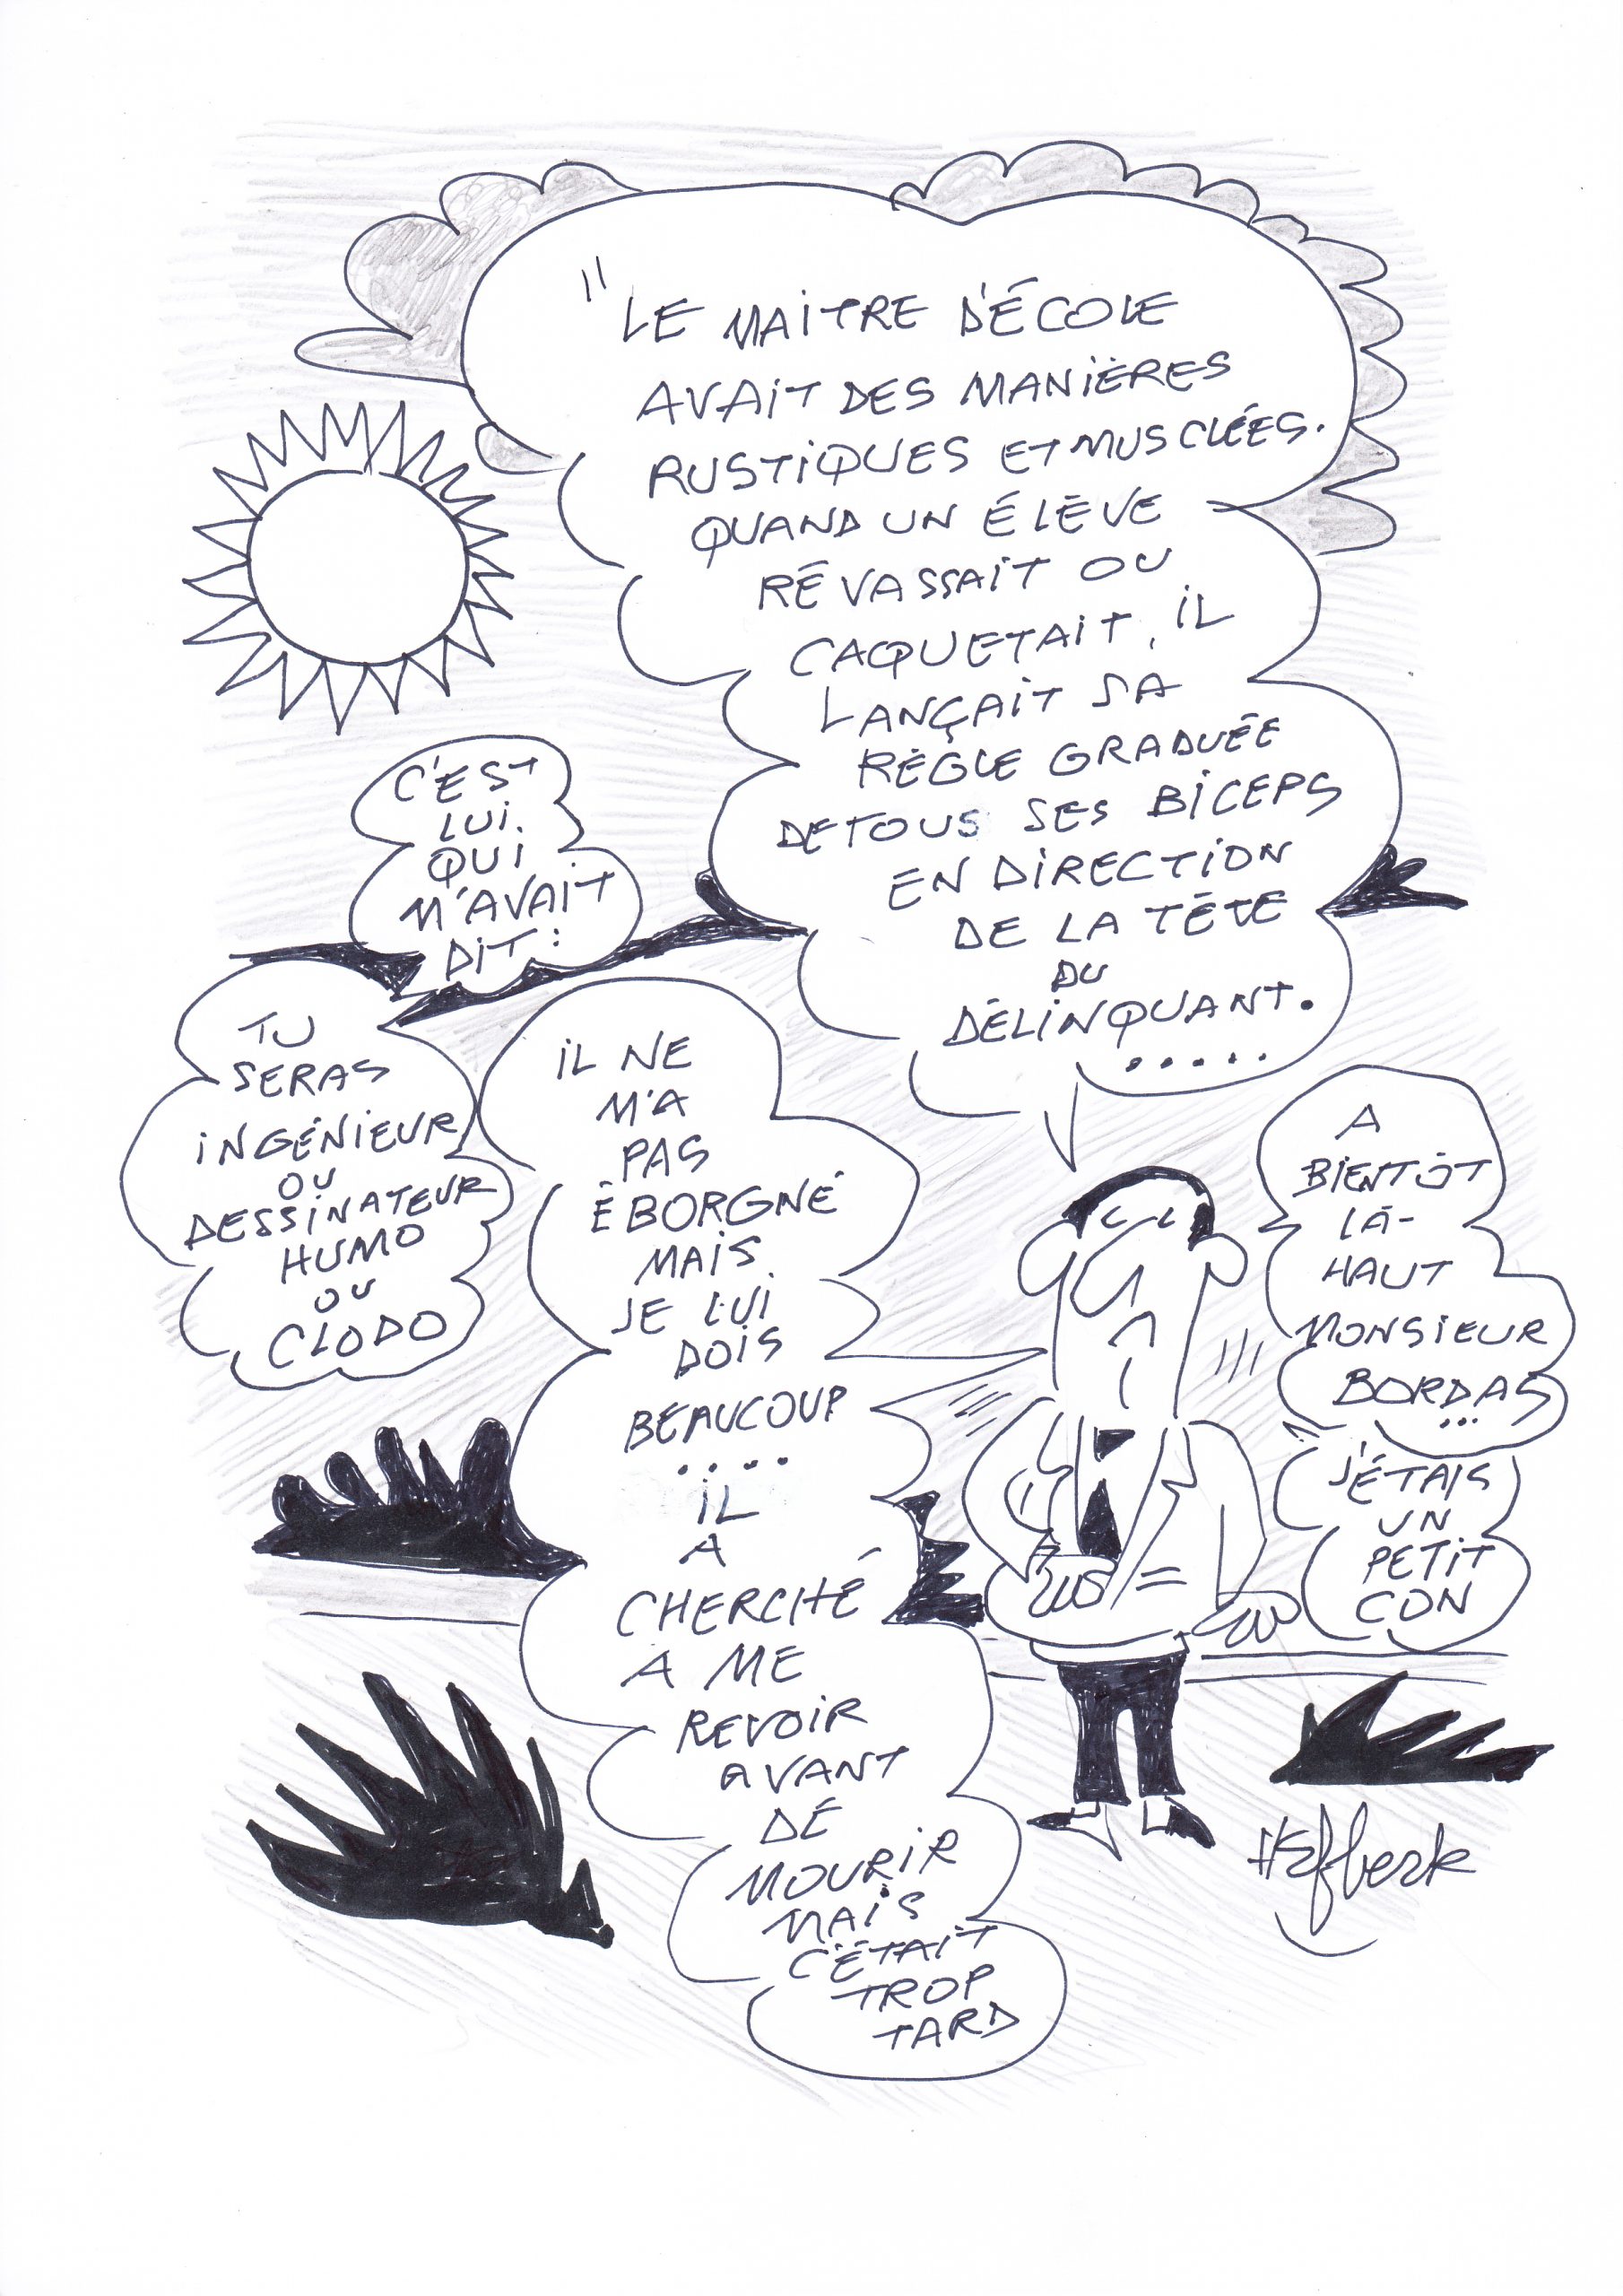 "LE MAITRE D'ÉCOLE
AVAIT DES MANIÈRES
RUSTIQUES ET MUSCLÉES.
QUAND UN ÉLÈVE
RÉVASSAIT OU
CAQUETAIT, IL
LANÇAIT SA
RÈGLE GRADUÉE
DE TOUS SES BICEPS
EN DIRECTION
DE LA TÊTE
DU
DÉLINQUANT.
.....
C'EST
LUI
QUI
M'AVAIT
DIT :
TU
SERAS
INGÉNIEUR
OU
DESSINATEUR
HUMO
OU
CLODO
IL NE
M'A
PAS
ÉBORGNÉ
MAIS
JE LUI
DOIS
BEAUCOUP
....
IL
A
CHERCHÉ
A ME
REVOIR
AVANT
DÉ
MOURIR
MAIS
C'ÉTAIT
TROP
TARD
A
BIENTÔT
LÀ-
HAUT
MONSIEUR
BORDAS
...
J'ÉTAIS
UN
PETIT
CON